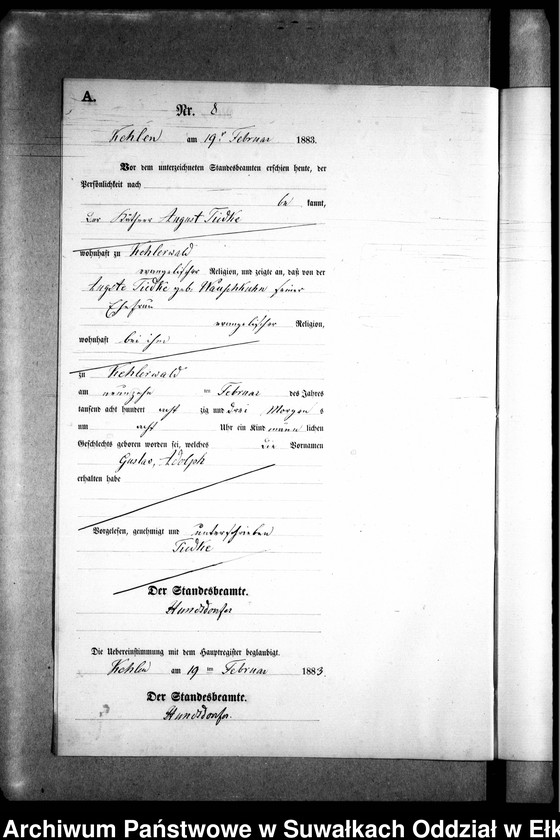 A.
Nr. 8
Kehlen am 19t Februar 1883.
Vor dem unterzeichneten Standesbeamten erschien heute, der
Persönlichkeit nach
be kannt,
der Käthner August Tiedke
wohnhaft zu Kehlerwald
evangelischer Religion, und zeigte an, daß von der
Auguste Tiedke geb. Wauschkuhn seiner
Ehefrau
evangelischer Religion,
wohnhaft bei ihm
zu Kehlerwald
am neunzehn ten Februar des Jahres
tausend acht hundert acht zig und drei Morgens
um acht Uhr ein Kind männ lichen
Geschlechts geboren worden sei, welches die Vornamen
Gustav, Adolph
erhalten habe
Vorgelesen, genehmigt und unterschrieben
Tiedke
Der Standesbeamte.
Hundsdorfer
Die Uebereinstimmung mit dem Hauptregister beglaubigt.
Kehlen am 19 ten Februar 1883.
Der Standesbeamte.
Hundsdorfer.
Archiwum Państwowe w Suwałkach Oddział w Ełk